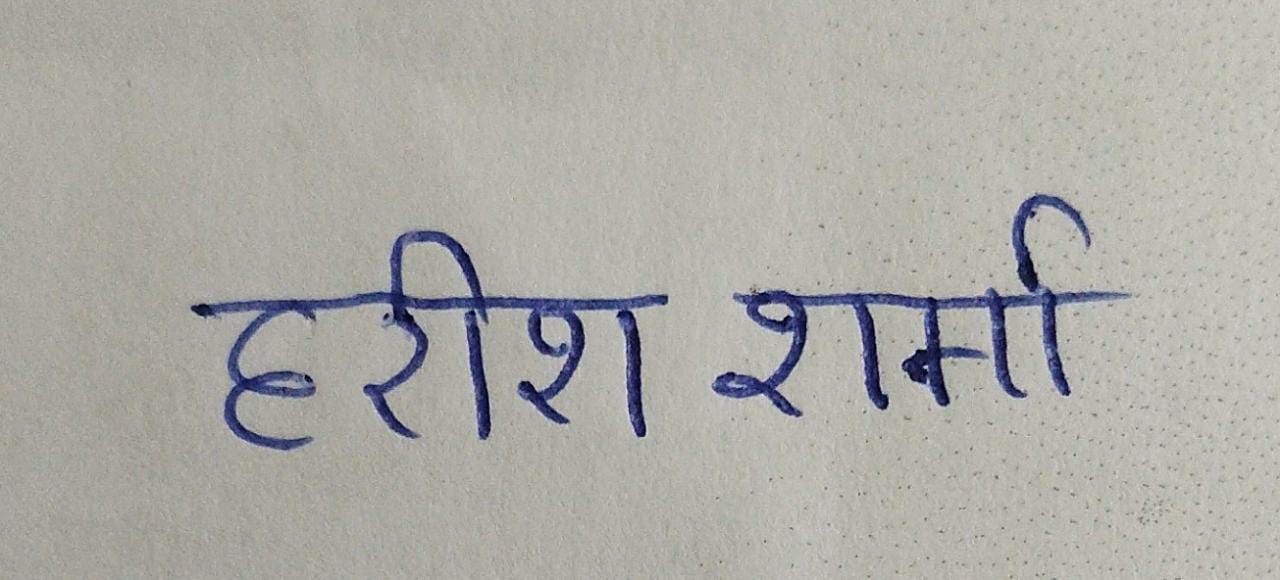 हरीश शर्मा